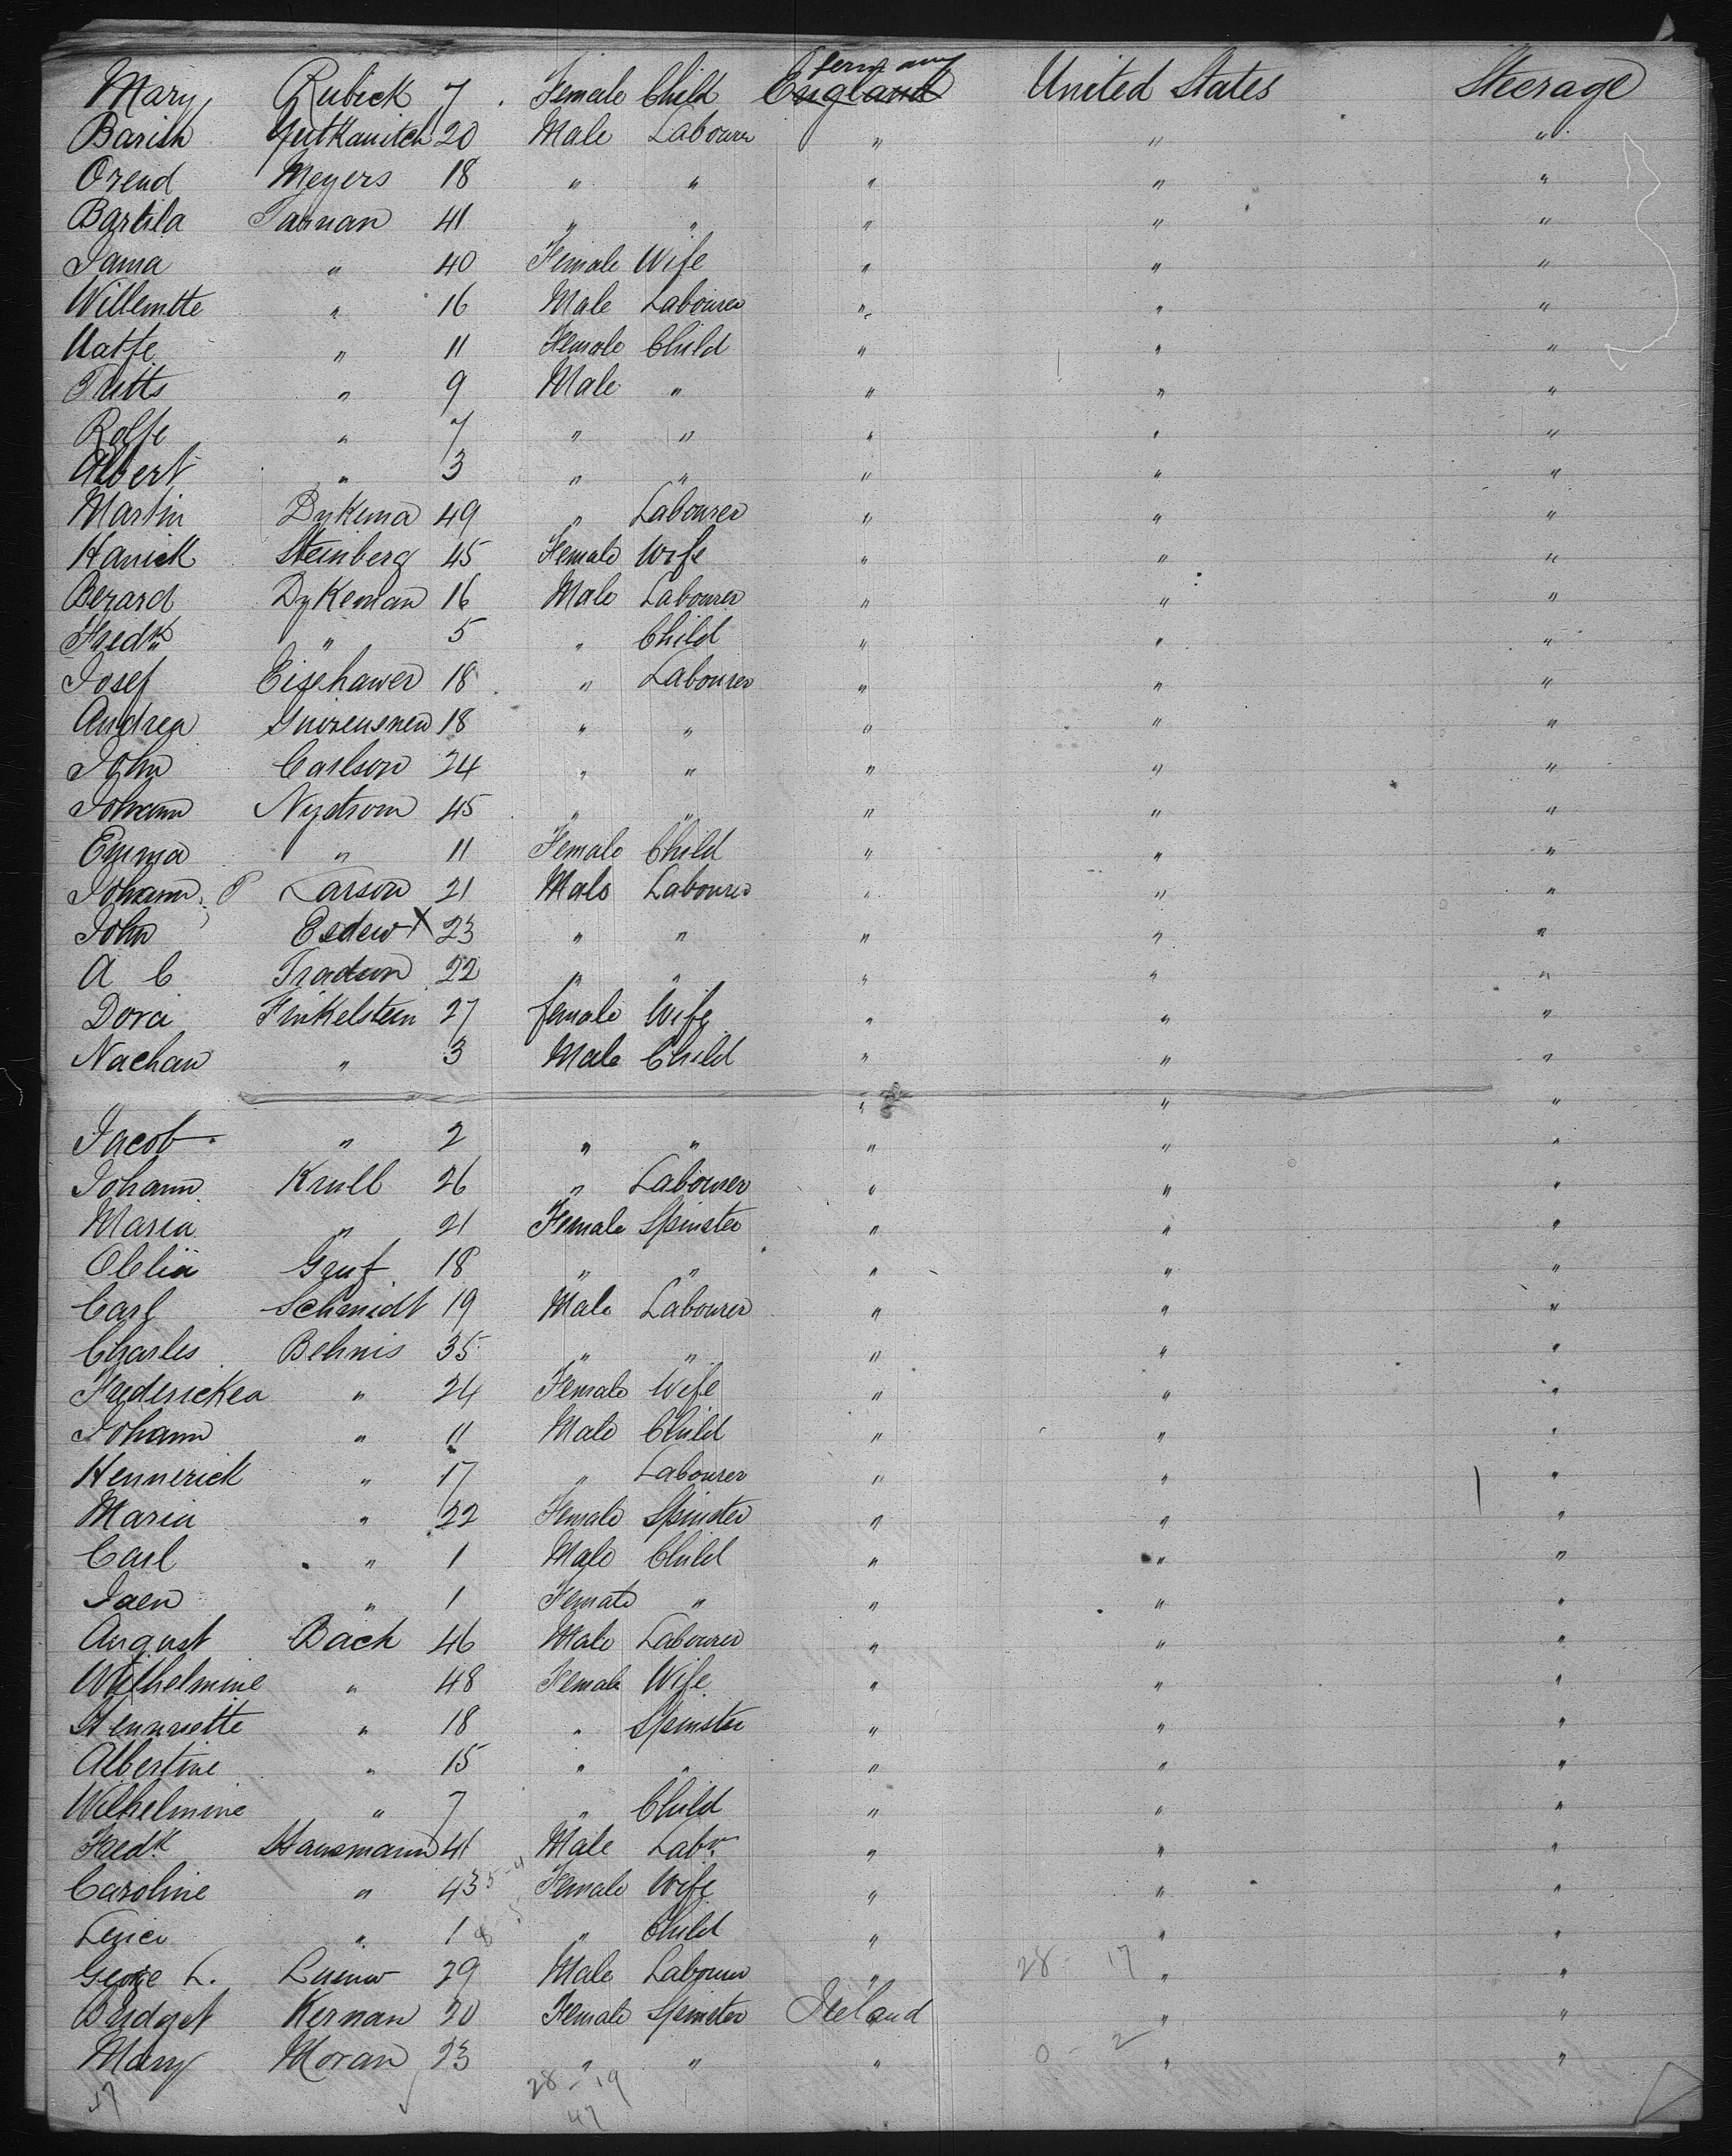 Germany
Mary Rubick 7 Female Child England United States Steerage
Barish Yutkavitch 20 Male Labourer " " "
Orend Meyers 18 " " " " "
Bartila Tarnan 41 " " " " "
Jama " 40 Female Wife " " "
Willemtte " 16 Male Labourer " " "
Uatfe " 11 Female Child " " "
Tutts " 9 Male " " " "
Rolfe " 7 " " " " "
Albert " 3 " " " " "
Martin Dykema 49 " Labourer " " "
Hanick Steinberg 45 Female Wife " " "
Berard Dykeman 16 Male Labourer " " "
Fredk " 5 " Child " " "
Josef Eisehawer 18 " Labourer " " "
Andrea 18 " " " " "
John Carlson 24 " " " " "
Johann Nystrom 45 " " " " "
Emma " 11 Female Child " " "
Johann P Larson 21 Male Labourer " " "
John Esdew X 23 " " " " "
A C Tradun 22 " " " " "
Dora Finkelstein 27 female Wife " " "
Nachan " 3 Male Child " " "
" " "
Jacob " 2 " " " " "
Johann Krull 26 " Labourer " " "
Maria " 21 Female Spinster " " "
Olelia Gruf 18 " " " " "
Carl Schmidt 19 Male Labourer " " "
Charles Behnis 35 " " " " "
Frederickea " 24 Female Wife " " "
Johann " 11 Male Child " " "
Hennerick " 17 " Labourer " " "
Maria " 22 Female Spinster " " "
Carl " 1 Male Child " " "
Jaen " 1 Female " " " "
August Bach 46 Male Labourer " " "
Wilhelmine " 48 Female Wife " " "
Hennriette " 18 " Spinster " " "
Albertine " 15 " " " " "
Wilhelmine " 7 " Child " " "
Fredk Hausmann 41 Male Labr " " "
Caroline " 43 Female Wife " " "
" 1 " Child " " "
George L. 29 Male Labourer " 28 - 17 " "
Bridget Kernan 20 Female Spinster Ireland " "
Mary Moran 23 " " " 0 - 2 " "
47 28 - 19
47